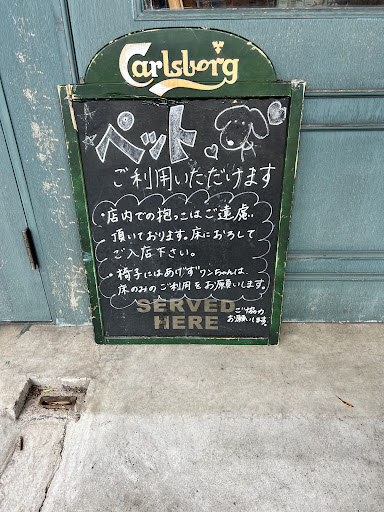 Carlsberg
ペット
ご利用いただけます
・店内での抱っこはご遠慮
頂いております。床におろして
ご入店下さい。
・椅子にはあげずワンちゃんは、
床のみのご利用をお願いします。
SERVED
HERE
ご協力の
お願いします